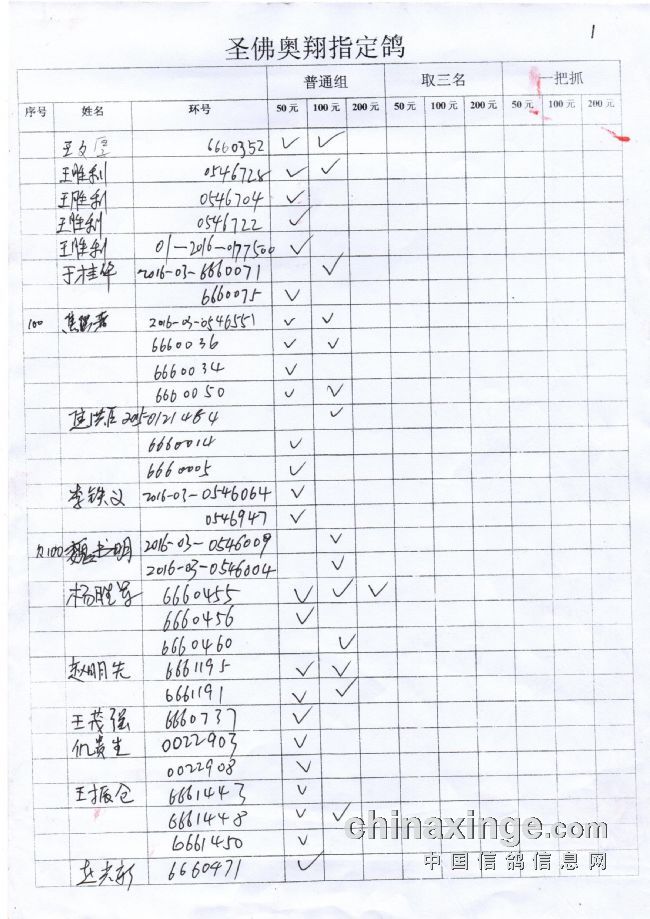 1
圣佛奥翔指定鸽
普通组 取三名 一把抓
序号 姓名 环号 50元 100元 200元 50元 100元 200元 50元 100元 200元
王文 6660352 ✓ ✓
王胜利 0546728 ✓ ✓
王胜利 0546704 ✓
王胜利 0546722 ✓
王胜利 01-2016-0177500 ✓
于桂华 2016-03-6660071 ✓
6660075 ✓
100 2016-03-0546551 ✓ ✓
6660036 ✓ ✓
6660034 ✓
6660050 ✓ ✓
20150121484 ✓
6660014 ✓
6660005 ✓
李铁义 2016-03-0546064 ✓
0546947 ✓
欠100 魏书明 2016-03-0546009 ✓
2016-03-0546004 ✓
杨胜军 6660455 ✓ ✓ ✓
6660456 ✓
6660460 ✓
赵明先 6661195 ✓ ✓
6661191 ✓ ✓
王茂强 6660737 ✓
仉贵生 0022903 ✓
0022908 ✓
王振仓 6661443 ✓
6661448 ✓ ✓
6661450 ✓
赵光新 6660471 ✓
chinaxinge.com
中国信鸽信息网